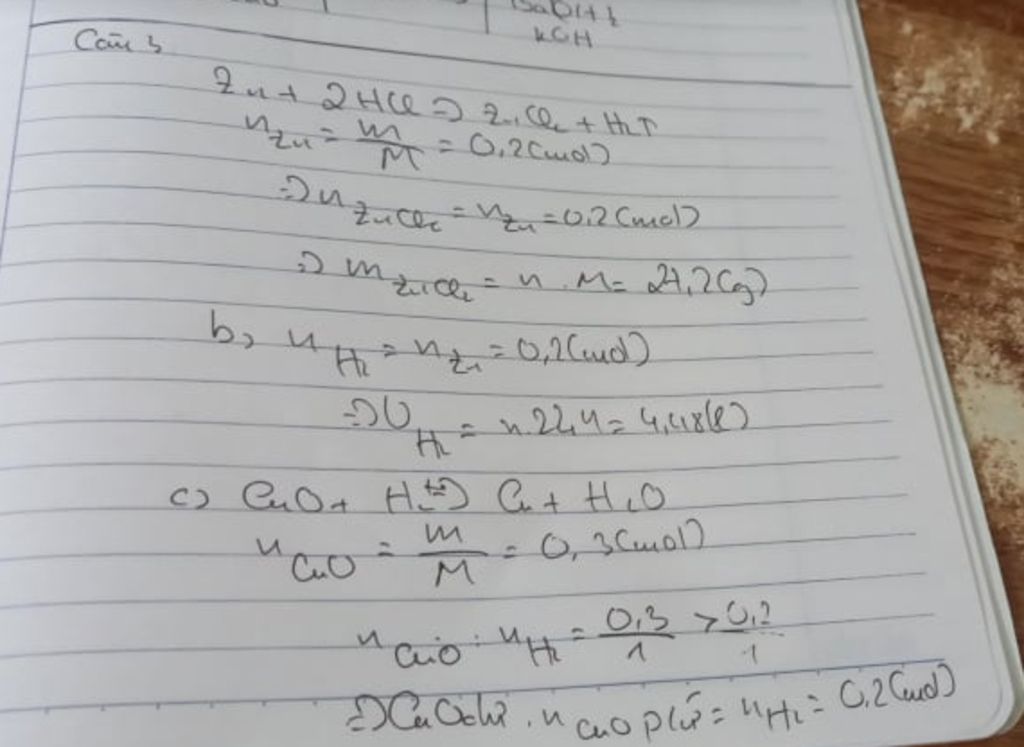 Ba(OH)2
KOH
Câu 3
Zn + 2HCl => ZnCl2 + H2↑
nZn = m/M = 0,2(mol)
=> nZnCl2 = nZn = 0,2(mol)
=> mZnCl2 = n . M = 24,2(g)
b, nH2 = nZn = 0,2(mol)
=> VH2 = n.22,4 = 4,48(l)
c) CuO + H2 t°=> Cu + H2O
nCuO = m/M = 0,3(mol)
nCuO : nH2 = 0,3/1 > 0,2/1
=> CuO dư. nCuO p/ứ = nH2 = 0,2(mol)